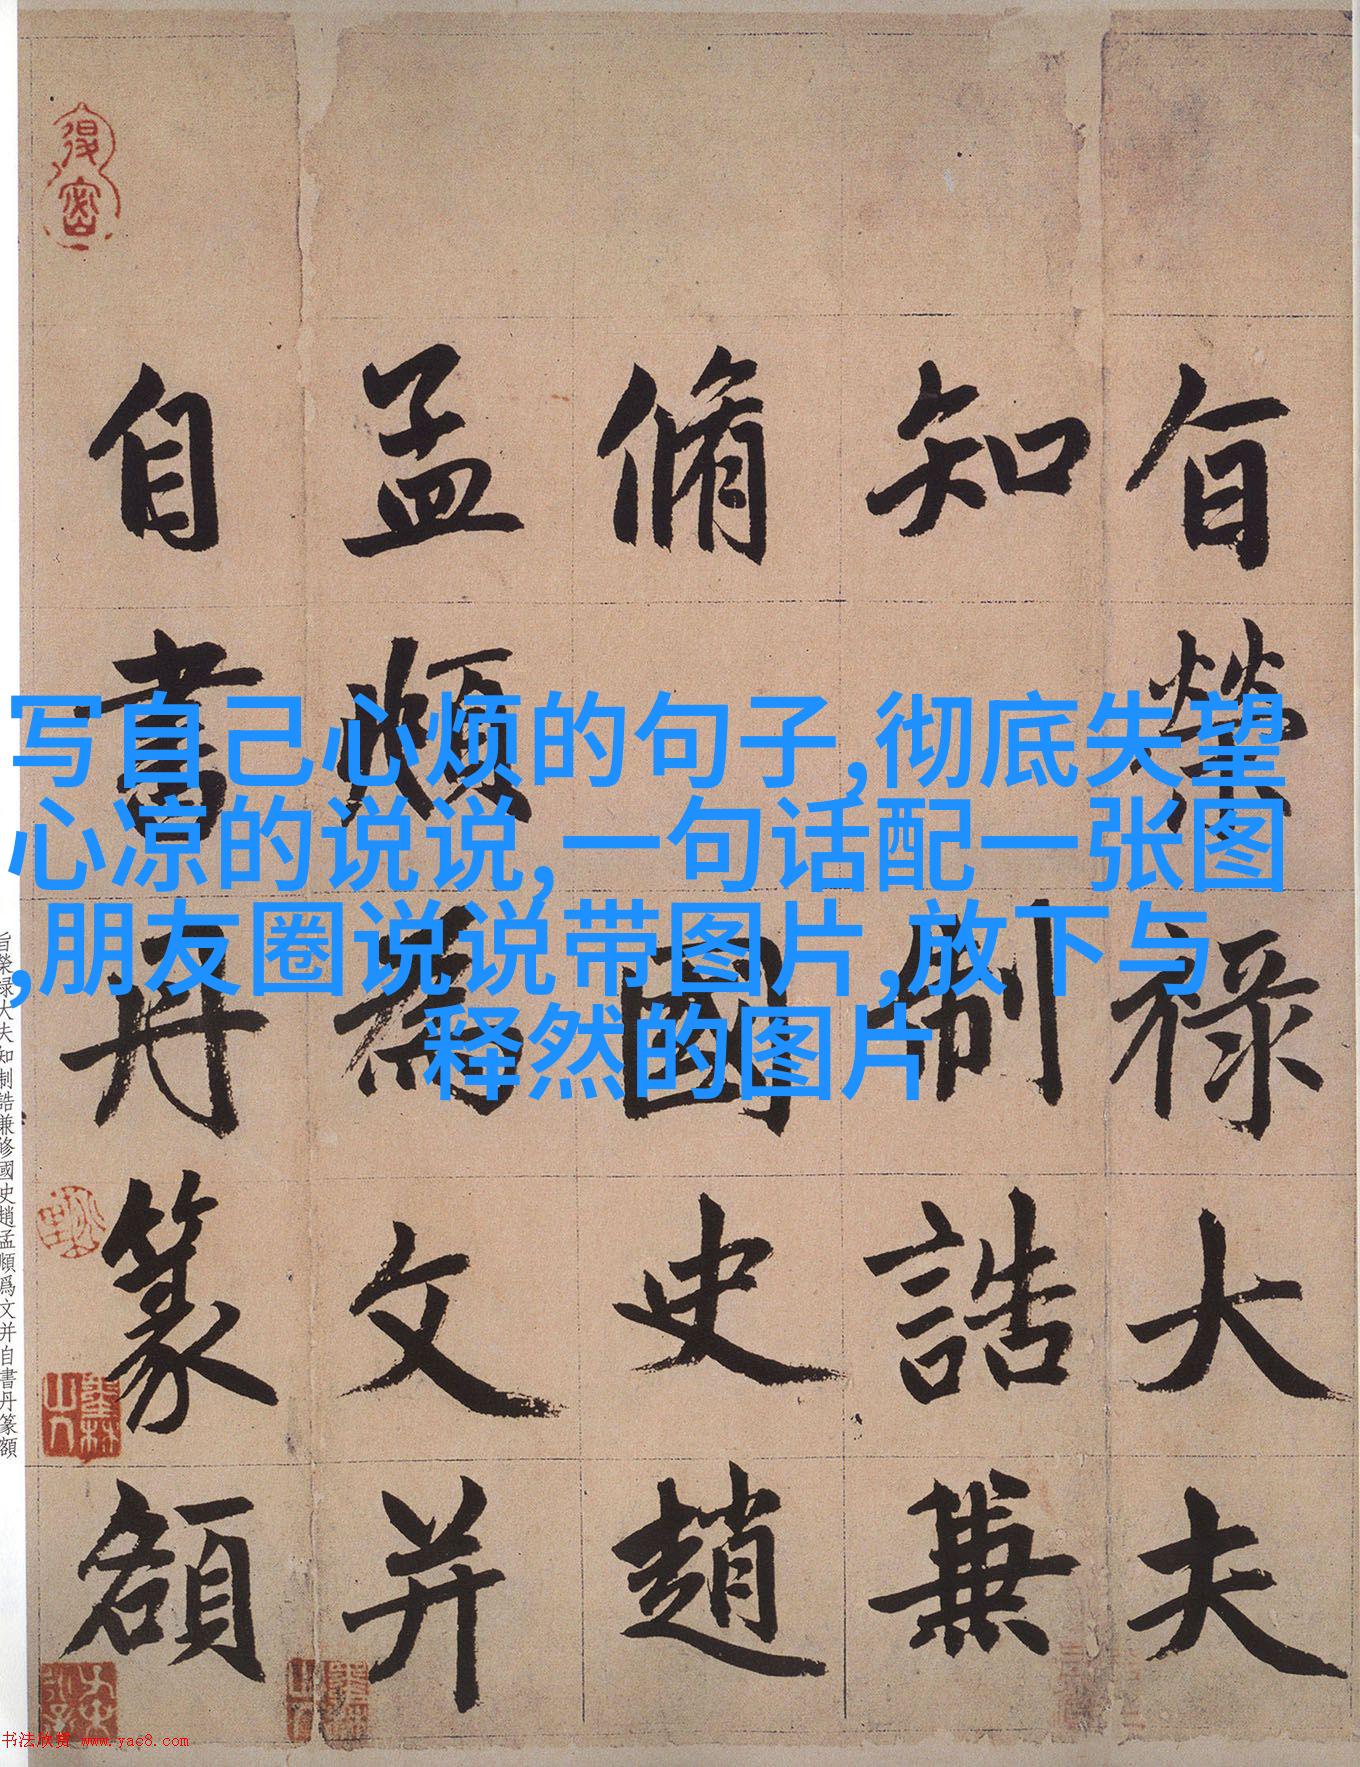 旨榮祿大夫
知制誥兼
脩國史趙
孟頫為文并
自書丹篆額
写自己心烦的句子,彻底失望
心凉的说说,一句话配一张图
,朋友圈说说带图片,放下与
释然的图片
旨榮祿大夫知制誥兼修國史趙孟頫爲文并自書丹篆額
书法欣赏 www.yac8.com